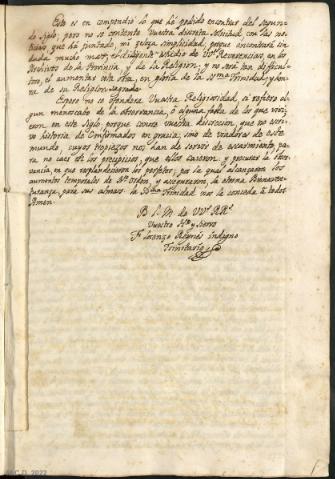 Esto es en compendio lo que há podido encontrar del segun-
do siglo; pero no se contente Vuestra discreta Mocedad con las no-
ticias que há juntado mi zelosa simplicidad, porque encontrará sin
duda mucho mas, el diligente Studio de VVs Reverencias, en los
Archivos de la Provincia y de la Religion; y no será tan dificul-
toso, el aumentar esta obra, en gloria de la SSma Trinidad y hon-
ra de su Religion sagrada.
Espero no se ofenderá Vuestra Religiosidad, si refiero al-
gun menoscabo de la observancia, ó alguna falta de los que vivi-
eron en este siglo porque conoce vuestra discrecion, que no escri-
vo historia de Confirmados en gracia, sino de viadores de este
mundo, cuyos tropiezos nos han de servir de escarmiento, pa-
ra no caer en los precipicios, que ellos cayeron, y procurar la obser-
vancia, en que resplandecieron los perfetos; por la qual alcanzaron los
aumentos temporales de Na Orden, y aseguraron, la eterna Bienaven-
turanza, para sus almas. la SSma Trinidad nos la conceda á todos
Amen.
B. L. M. de VVs RRs
Vuestro Hno y Siervo
Fr Lorenzo Reynés indigno
Trinitario